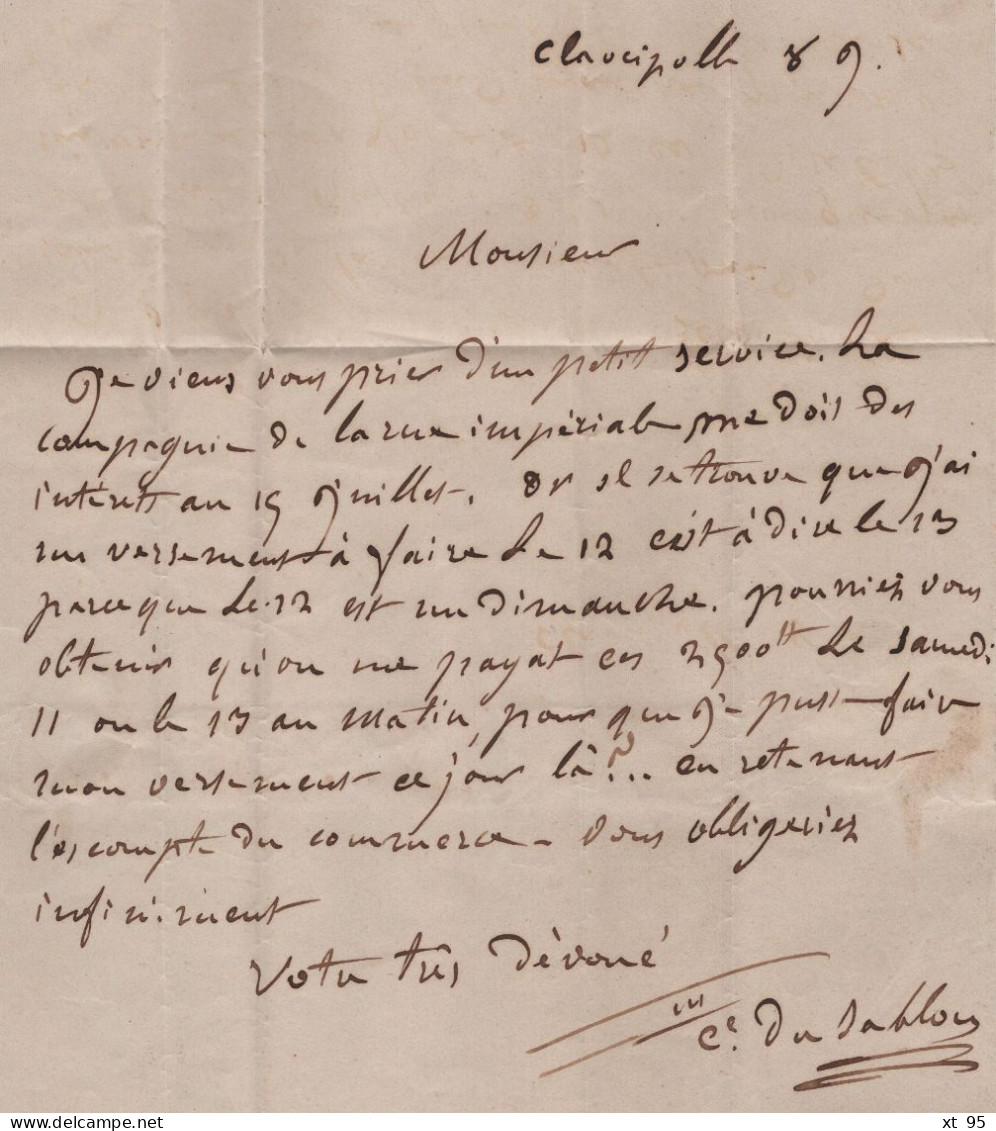 8 9.
Monsieur
Je viens vous prier d'un petit service. La
compagnie de la rue impériale me doit des
intérets au 15 Juillet. Or il se trouve que j'ai
un versement à faire le 12 c'est à dire le 13
parce que le 12 est un dimanche. pourriez vous
obtenir qu'on me payat ces 2500tt le samedi
11 ou le 13 au matin, pour que je pusse faire
mon versement ce jour là?.. en retenant
l'escompte du commerce - Vous obligeriez
infiniment
Votre très dévoué
Ce. du Sablon
delcampe.net
xt 95